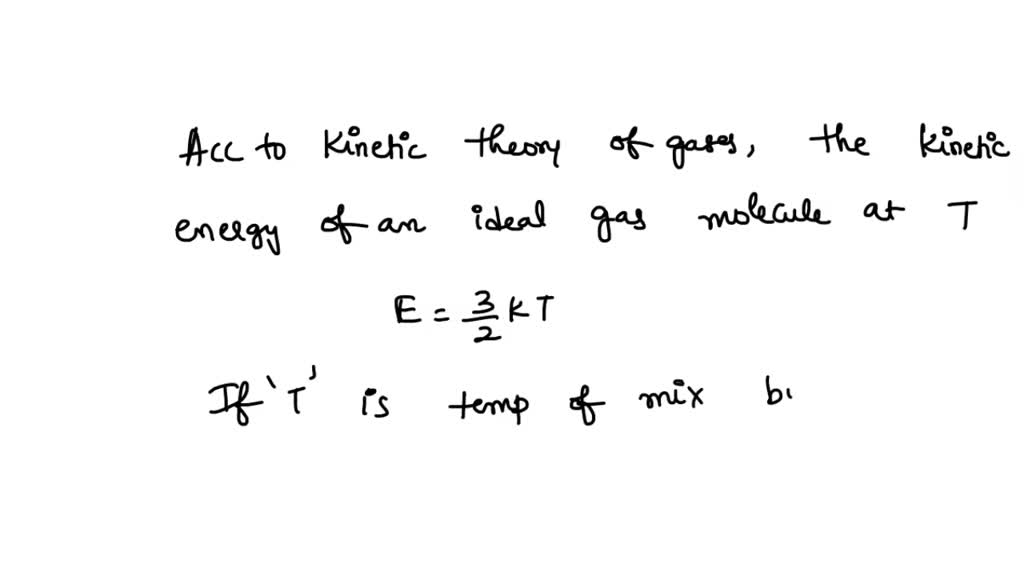 Acc to Kinetic theory of gases, the Kinetic
energy of an ideal gas molecule at T
E = 3/2 KT
If 'T' is temp of mix